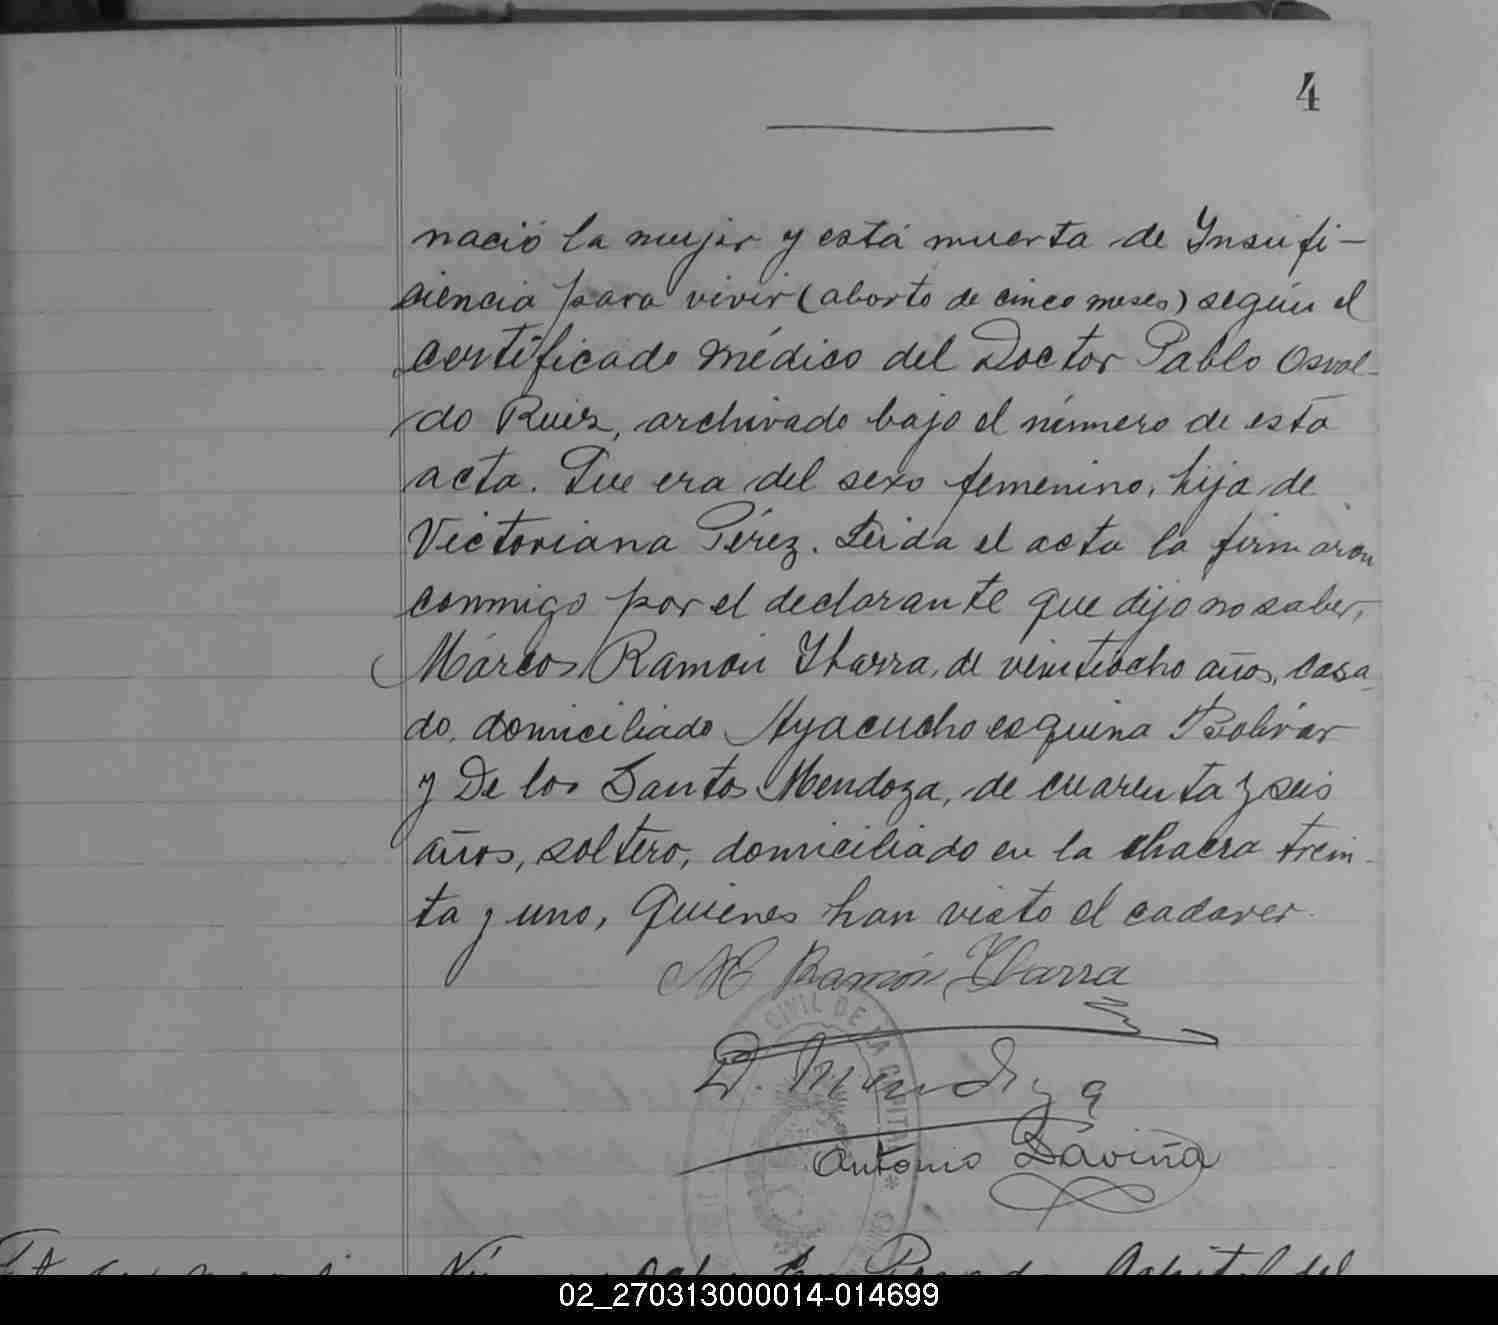 4
nació la mujer y está muerta de Ynsufi-
siencia para vivir (aborto de cinco meses) según el
certificado médico del Doctor Pablo Osval-
do Ruiz, archivado bajo el número de esta
acta. Que era del sexo femenino, hija de
Victoriana Pérez. Leida el acta la firmaron
conmigo por el declarante que dijo no saber,
Márcos Ramón Ybarra, de veintiocho años, casa-
do, domiciliado Ayacucho esquina Bolívar
y De los Santos Mendoza, de cuarenta y seis
años, soltero, domiciliado en la chacra trein-
ta y uno, quienes han visto el cadaver.
M Ramón Ybarra
CIVIL DE LA CAPITAL
D. Mendoza
Antonio Daviña
02_270313000014-014699